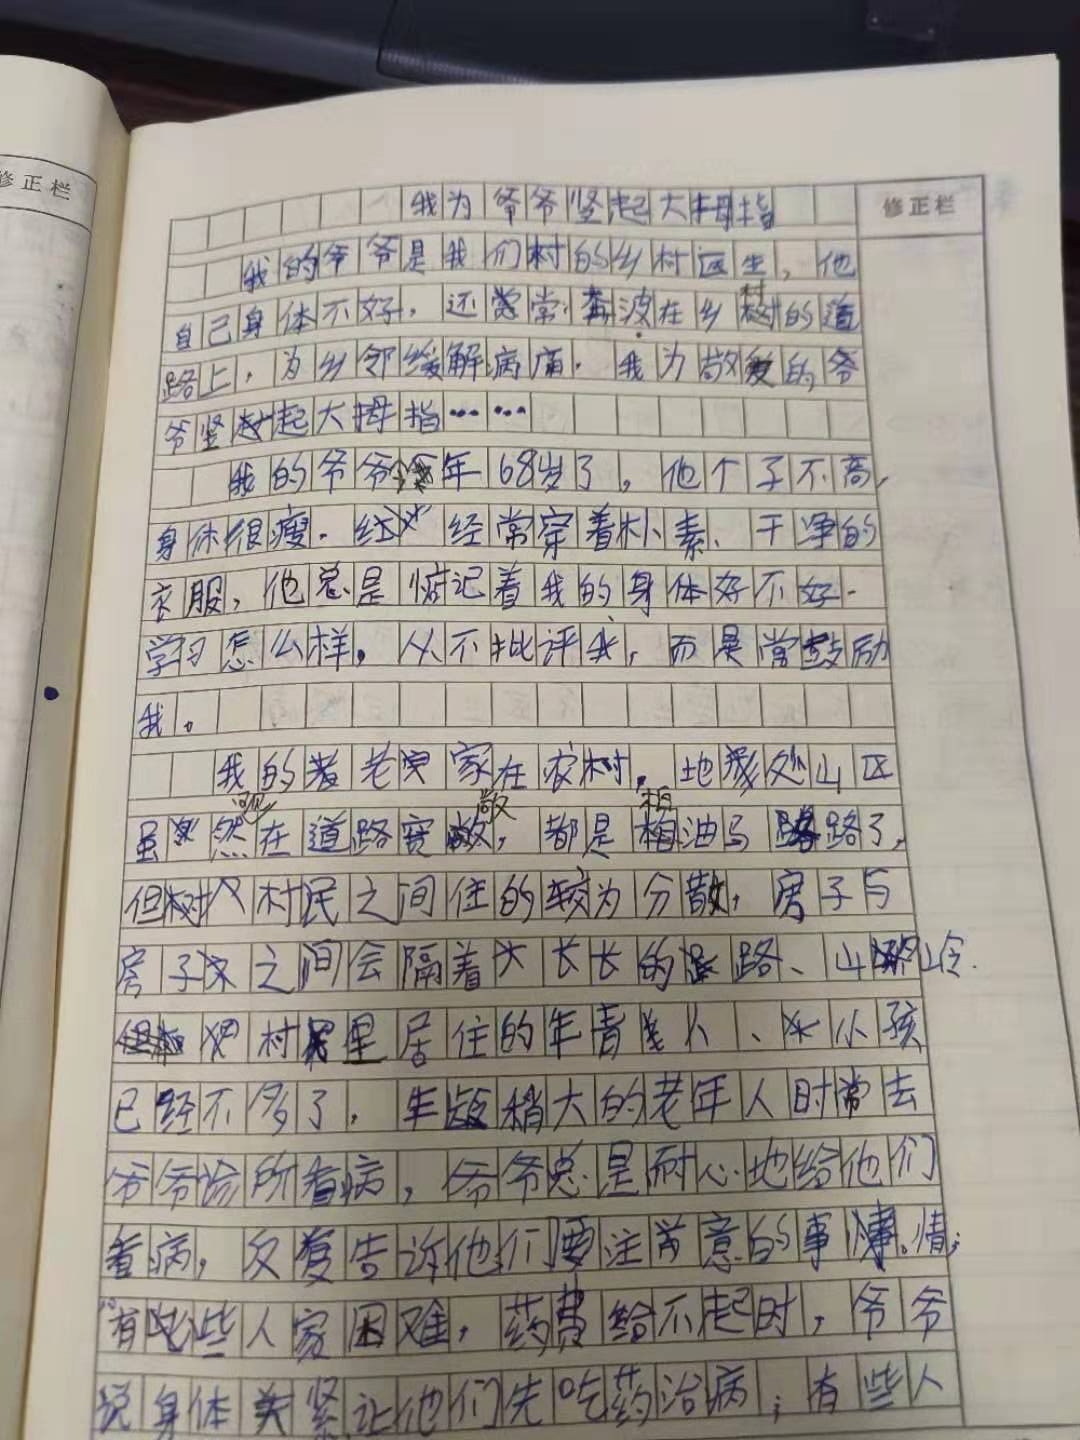 修正栏
修正栏
我为爷爷竖起大拇指
我的爷爷是我们村的乡村医生，他
自己身体不好，还常常奔波在乡村的道
路上，为乡邻缓解病痛．我为敬爱的爷
爷竖起大拇指……
我的爷爷今年68岁了，他个子不高，
身体很瘦．经常穿着朴素、干净的
衣服，他总是惦记着我的身体好不好．
学习怎么样，从不批评我，而是常鼓励
我。
我的老家在农村，地处山区
虽然现在道路宽敞，都是柏油马路了，
但村民之间住的较为分散，房子与
房子之间会隔着长长的路、山岭．
村里居住的年青人、小孩
已经不多了，年龄稍大的老年人时常去
爷爷诊所看病，爷爷总是耐心地给他们
看病，反复告诉他们要注意的事情；
有些人家困难，药费给不起时，爷爷
说身体关紧让他们先吃药治病；有些人